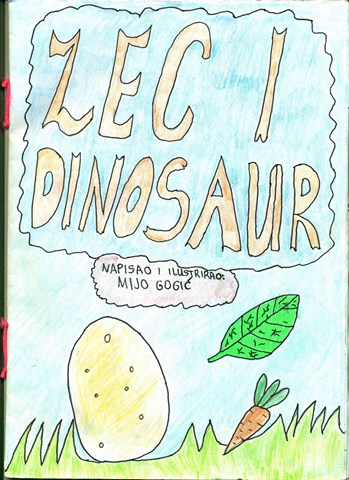 ZEC I
DINOSAUR
NAPISAO I ILUSTRIRAO:
MIJO GOGIĆ